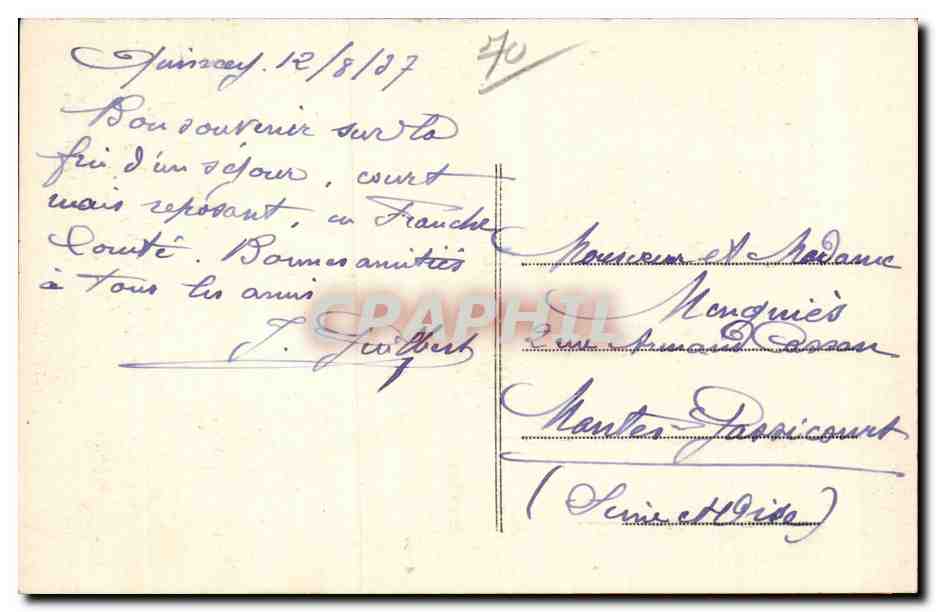 Quingey. 12/8/37
70
Bon souvenir sur la
fin d'un séjour, court
mais reposant, en Franche
Comté. Bonnes amitiés
à tous les amis
J. Guilbert
Monsieur et Madame
Monguiès
2 rue Armand Cassan
Mantes-Gassicourt
(Seine et Oise)
CPAPHIL